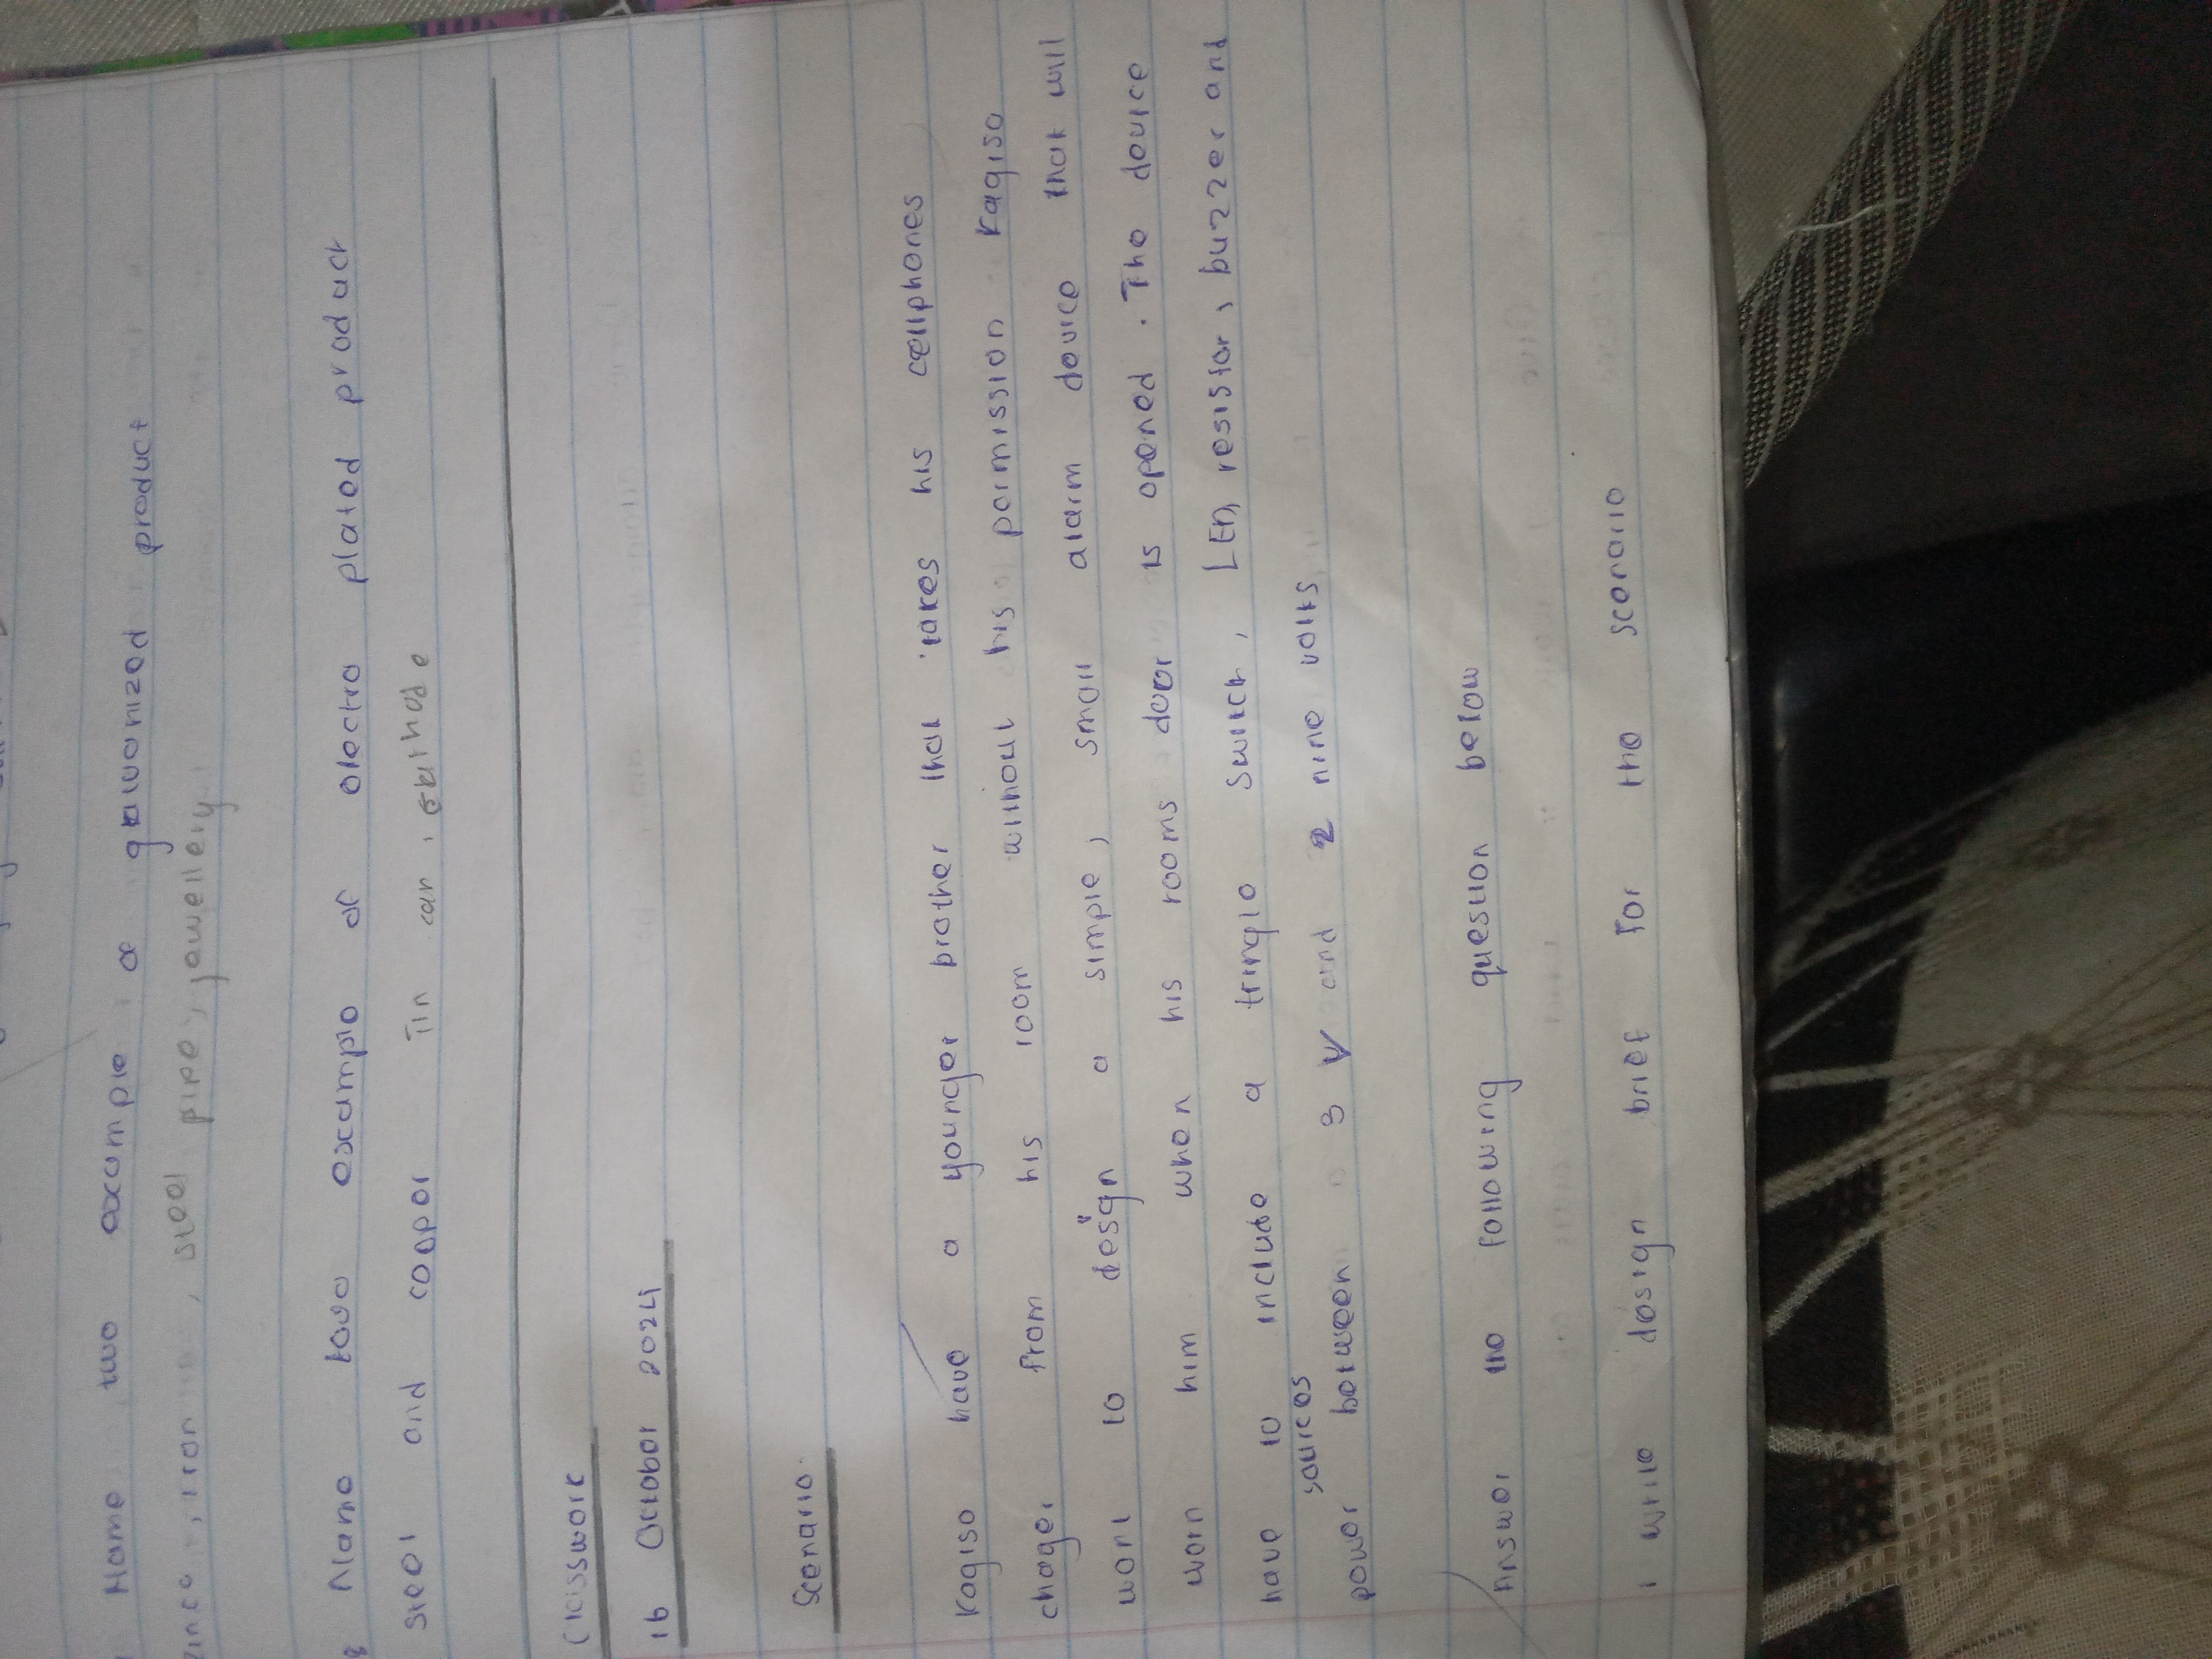 Name two example of galvanized product
zince, iron, steel pipe, jawellery
8 Name two example of electro plated product
steel and copper Tin can, cathode
Classwork
16 October 2024
Scenario
Kagiso have a younger brother that takes his cellphones
chager from his room without his permission Kagiso
want to design a simple, small alarm device that will
worn him when his rooms door is opened. The device
have to include a tringle switch, LED, resistor, buzzer and
sources
power between 3 V and 2 nine volts
Answer the following question below
1 write design brief for the scenario